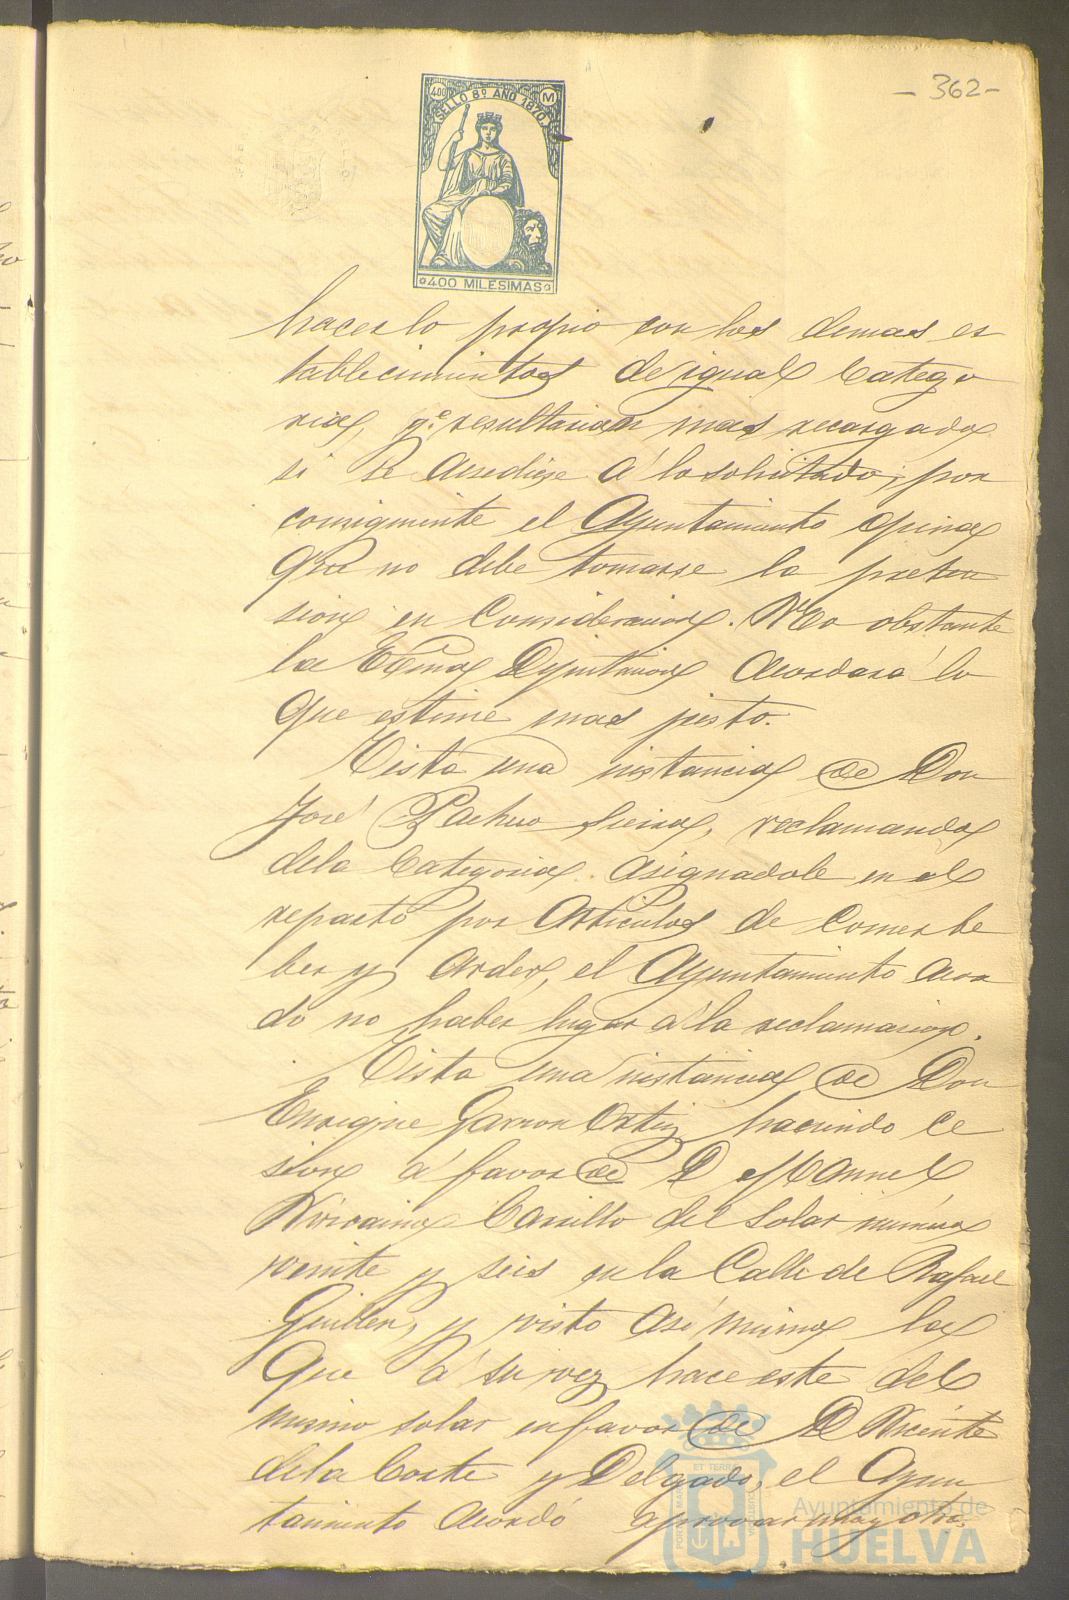 - 362 -
400 M
SELLO 8º AÑO 1870.
400 MILESIMAS
hacerlo propio con los demas es
tablecimientos de igual catego
ria, q.e resultarian mas recargados
si se accediese á lo solicitado; por
consiguiente el Ayuntamiento opina
que no debe tomarse la preten
sion en consideracion. No obstante
la Ecsma Diputacion acordará lo
que estime mas justo.
Vista una instancia de Don
José Pacheco Sierra, reclamando
dela categoria asignadole en el
reparto por articulos de comer be
ber y arder, el Ayuntamiento acor
dó no haber lugar á la reclamacion.
Vista una instancia de Don
Enrique Garron Ortiz haciendo ce
sion á favor de D Manuel
Vizcaino Carrillo del solar numero
veinte y seis en la Calle de Rafael
Guillen, y visto asi mismo la
que á su vez hace este del
mismo solar en favor de D Vicente
dela Corte y Delgado, el Ayun
tamiento acordó aprovar una y otra.
PORTUS MARIS ET TERRAE CUSTODIA
Ayuntamiento de
HUELVA